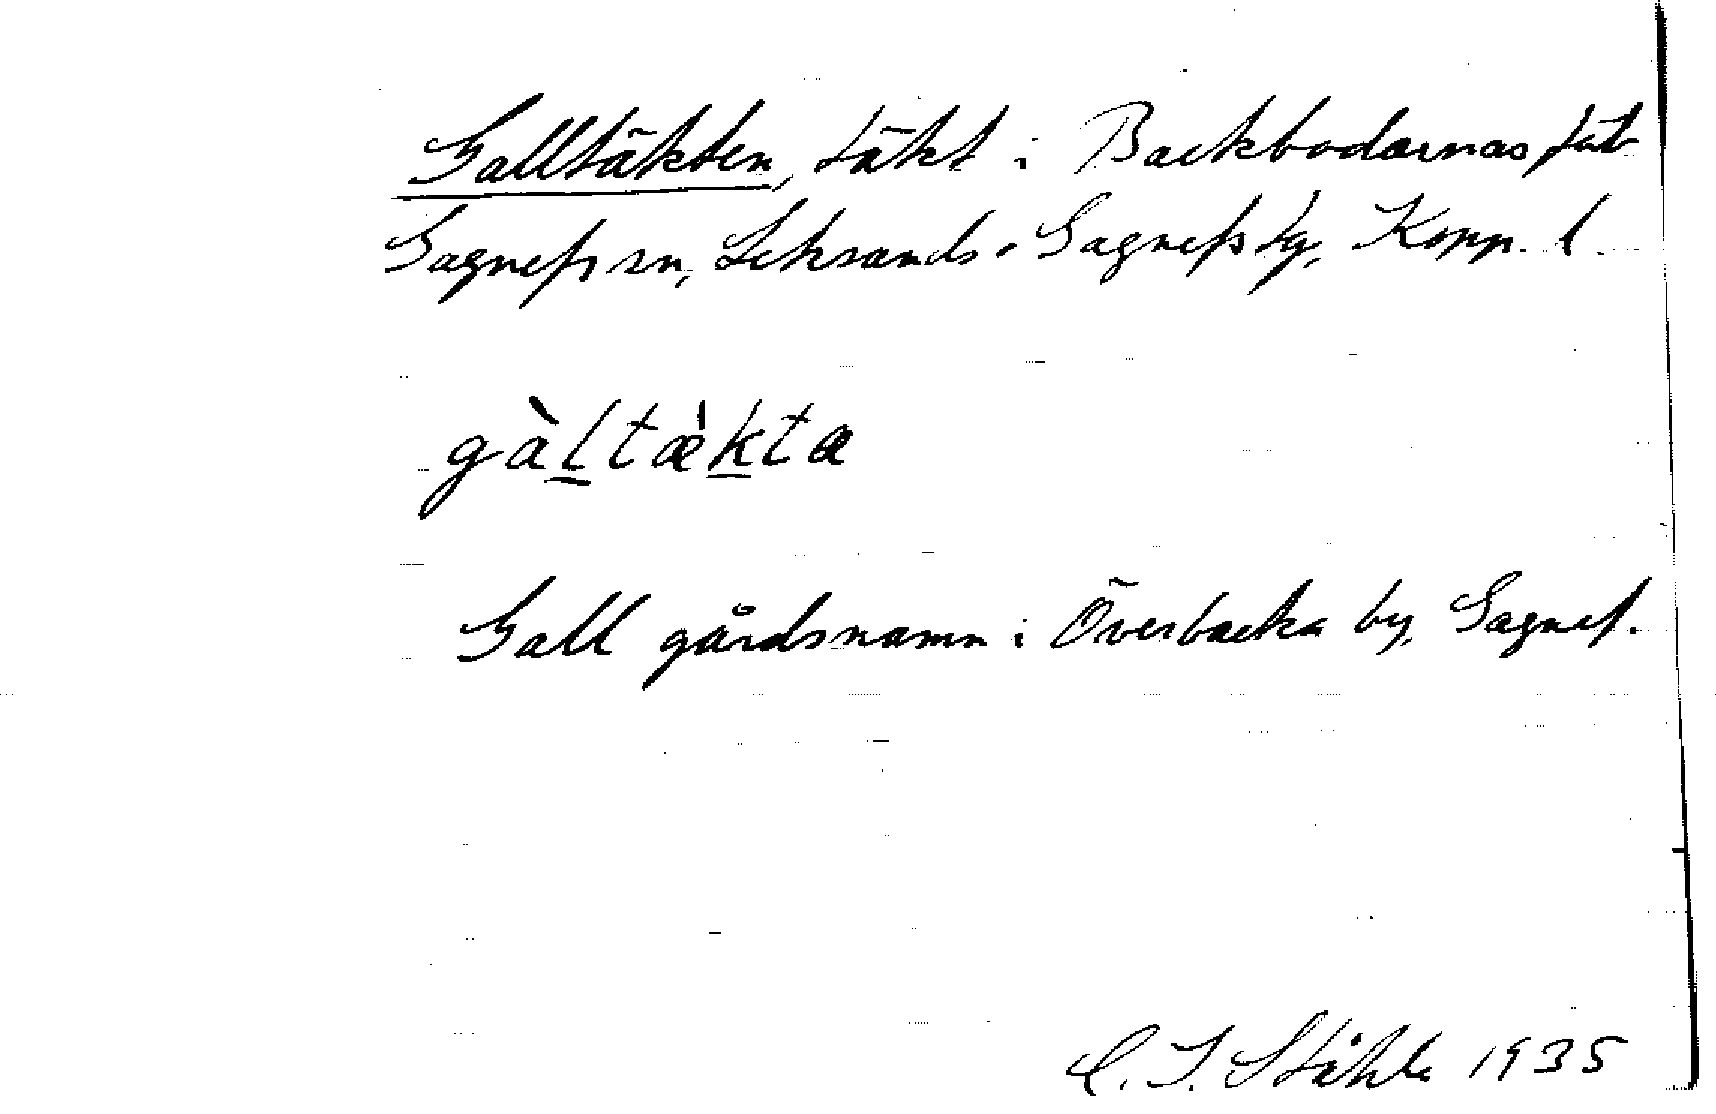 Galltäkten, täkt i Backbodarnas fäb
Gagnefs sn, Leksands o Gagnefs tg, Kopp. l.
gàl̲tæ̀k̲ta
Gall gårdsnamn i Överbacka by, Gagnef.
C. I. Ståhle 1935